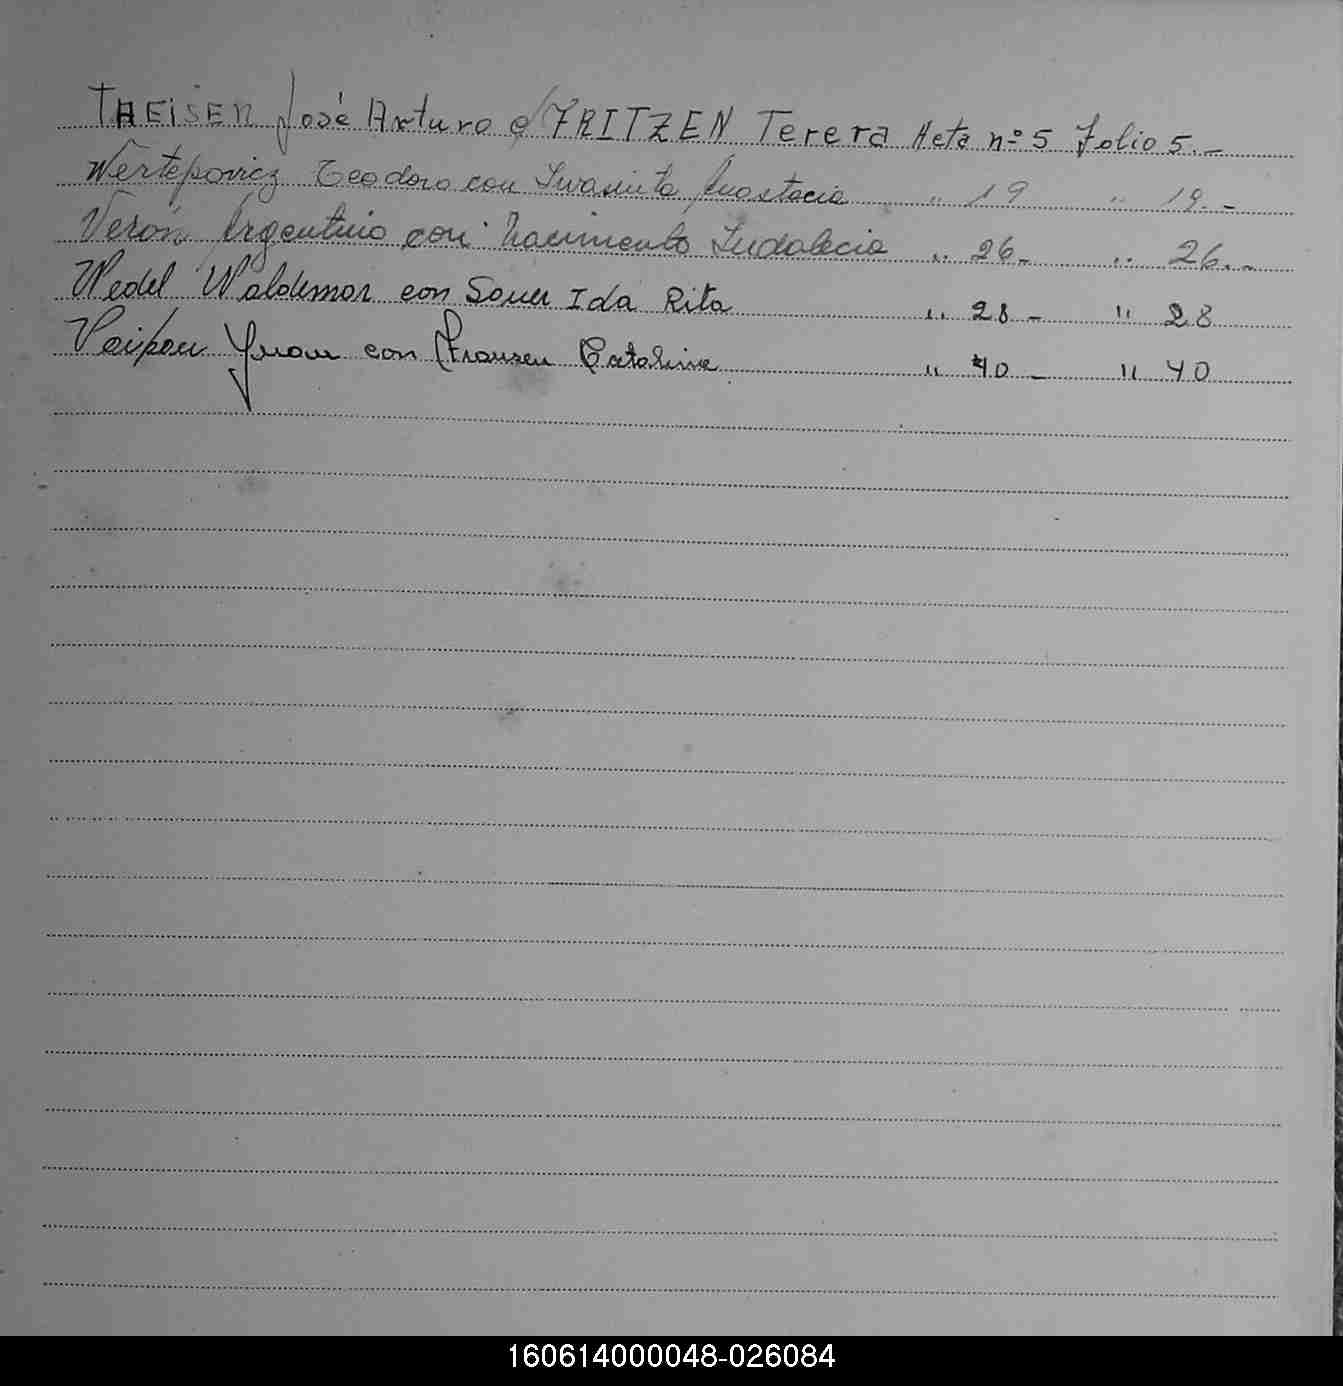 THEISEN José Arturo c/ FRITZEN Terera Acta nº 5 Folio 5.-
Wertepovicz Teodoro con Anastacia " 19 " 19.-
Verón Argentino con Nacimento Indalecia " 26- " 26.-
Wedel Waldemar con Sauer Ida Rita " 28- " 28
Juan con Franzen Catalina " 40- " 40
160614000048-026084